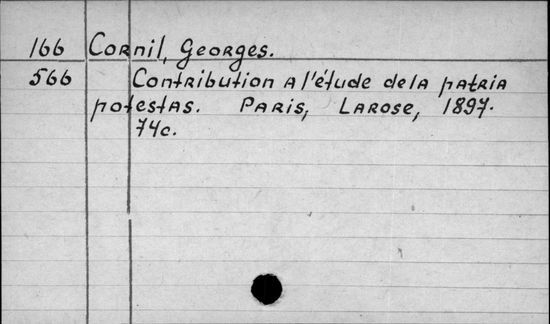 166 Cornil, Georges.
566 Contribution a l'étude de la patria
potestas. Paris, Larose, 1897.
74c.